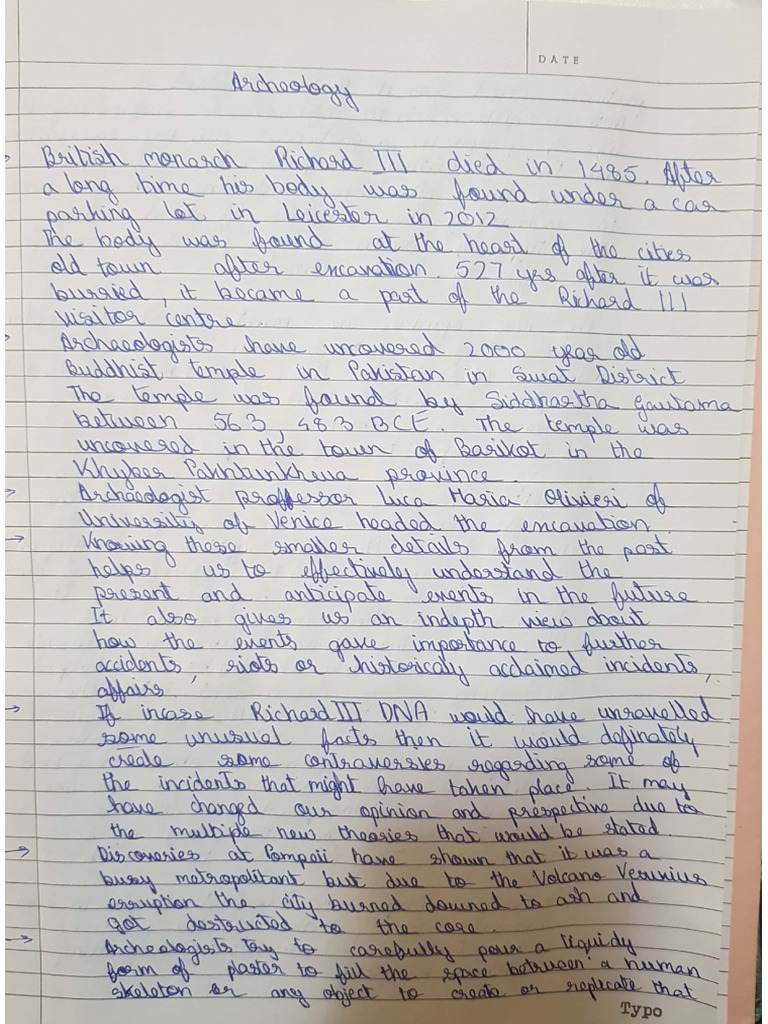 DATE
Archeology
British monarch Richard III died in 1485. After
a long time his body was found under a car
parking lot in Leicester in 2012
The body was found at the heart of the cities
old town after excavation. 527 yes after it was
burried, it became a part of the Richard III
visitor centre.
Archaeologists have uncovered 2000 year old
Buddhist temple in Pakistan in Swat District
The temple was found by Siddhartha Gautama
between 563, 483 BCE. The temple was
uncovered in the town of Barikot in the
Khyber Pakhtunkhwa province.
Archaeologist proffessor Luca Maria Olivieri of
University of Venice headed the excavation.
Knowing these smaller details from the past
helps us to effectively understand the
present and anticipate events in the future
It also gives us an indepth view about
how the events gave importance to further
accidents, riots or historicaly acclaimed incidents,
affairs.
If incase Richard III DNA would have unravelled
some unusual facts then it would definately
create some contraversies regarding some of
the incidents that might have taken place. It may
have changed our opinion and prespective due to
the multiple new theories that would be stated.
Discoveries at Pompeii have shown that it was a
busy metropolitant but due to the Volcano Vesuvius
erruption the city burned downed to ash and
got destructed to the core.
Archeologists try to carefully pour a liquidy
form of plaster to fill the space between a human
skeleton or any object to create or replicate that
Typo